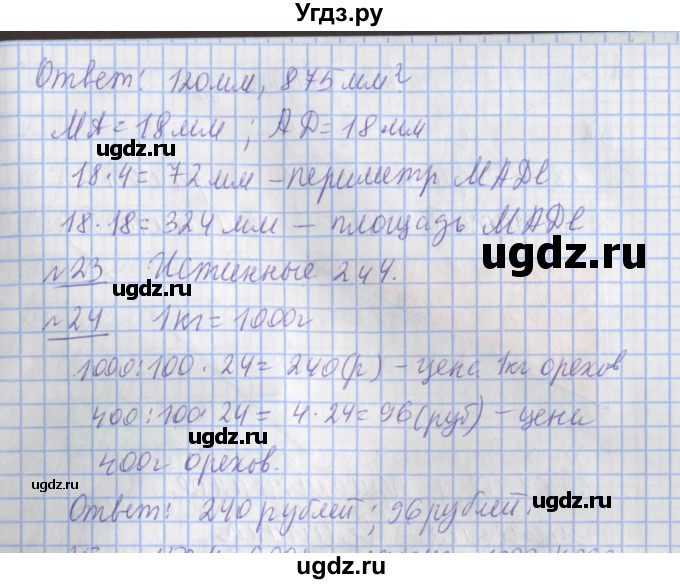 Угдз.ру
Ответ: 120мм, 875мм²
МА=18мм; АD=18мм
18·4=72мм – периметр МАDC
18·18=324мм – площадь МАDC
№23 Истинные 2 и 4.
№24 1кг=1000г
1000:100·24=240(р) – цена 1кг орехов
400:100·24= 4·24=96(руб) – цена
400г орехов.
Ответ: 240 рублей; 96 рублей.
ugdz.ru
ugdz.ru
ugdz.ru
ugdz.ru
ugdz.ru
ugdz.ru
ugdz.ru
ugdz.ru